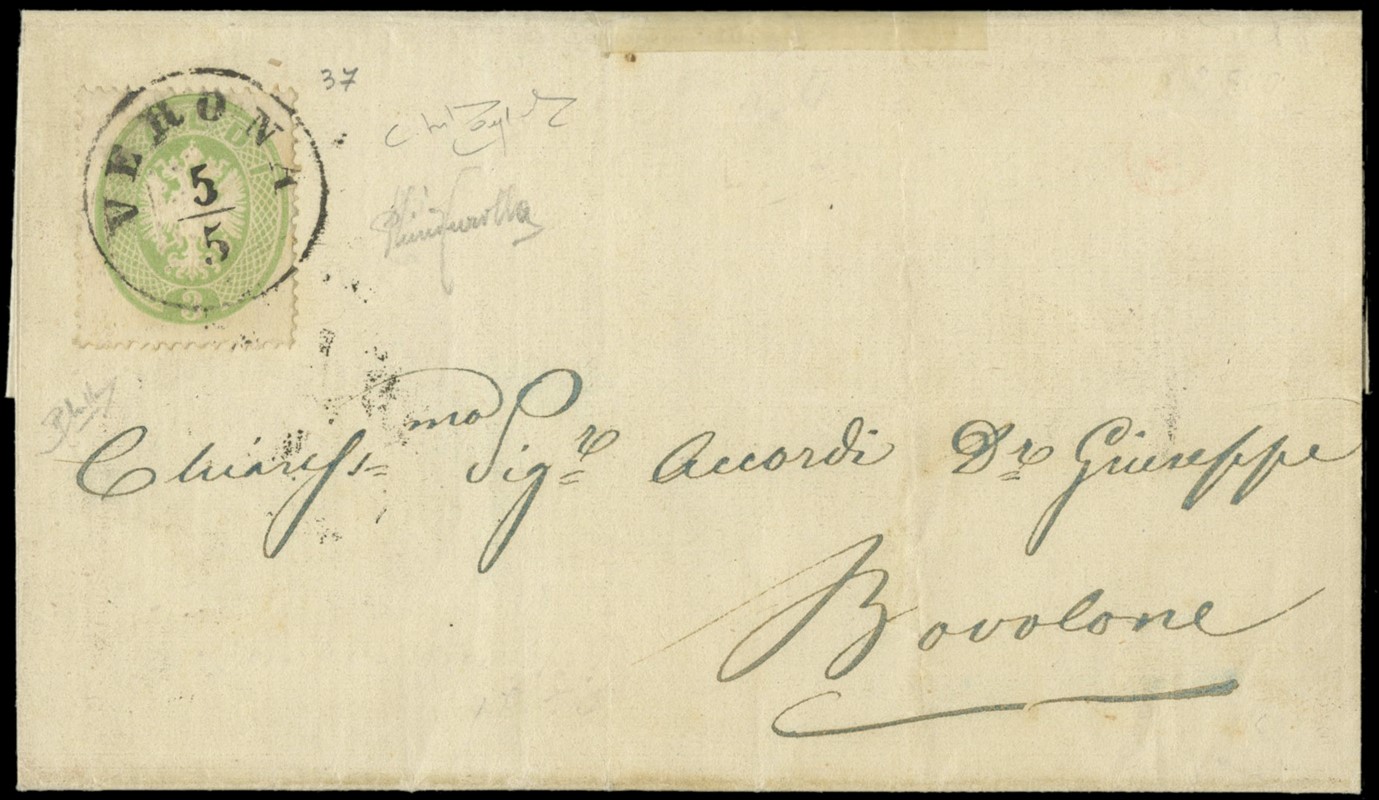 VERONA
5
5
3
37
Chiariss= mo Sigre Accordi Dr Giuseppe
Bovolone